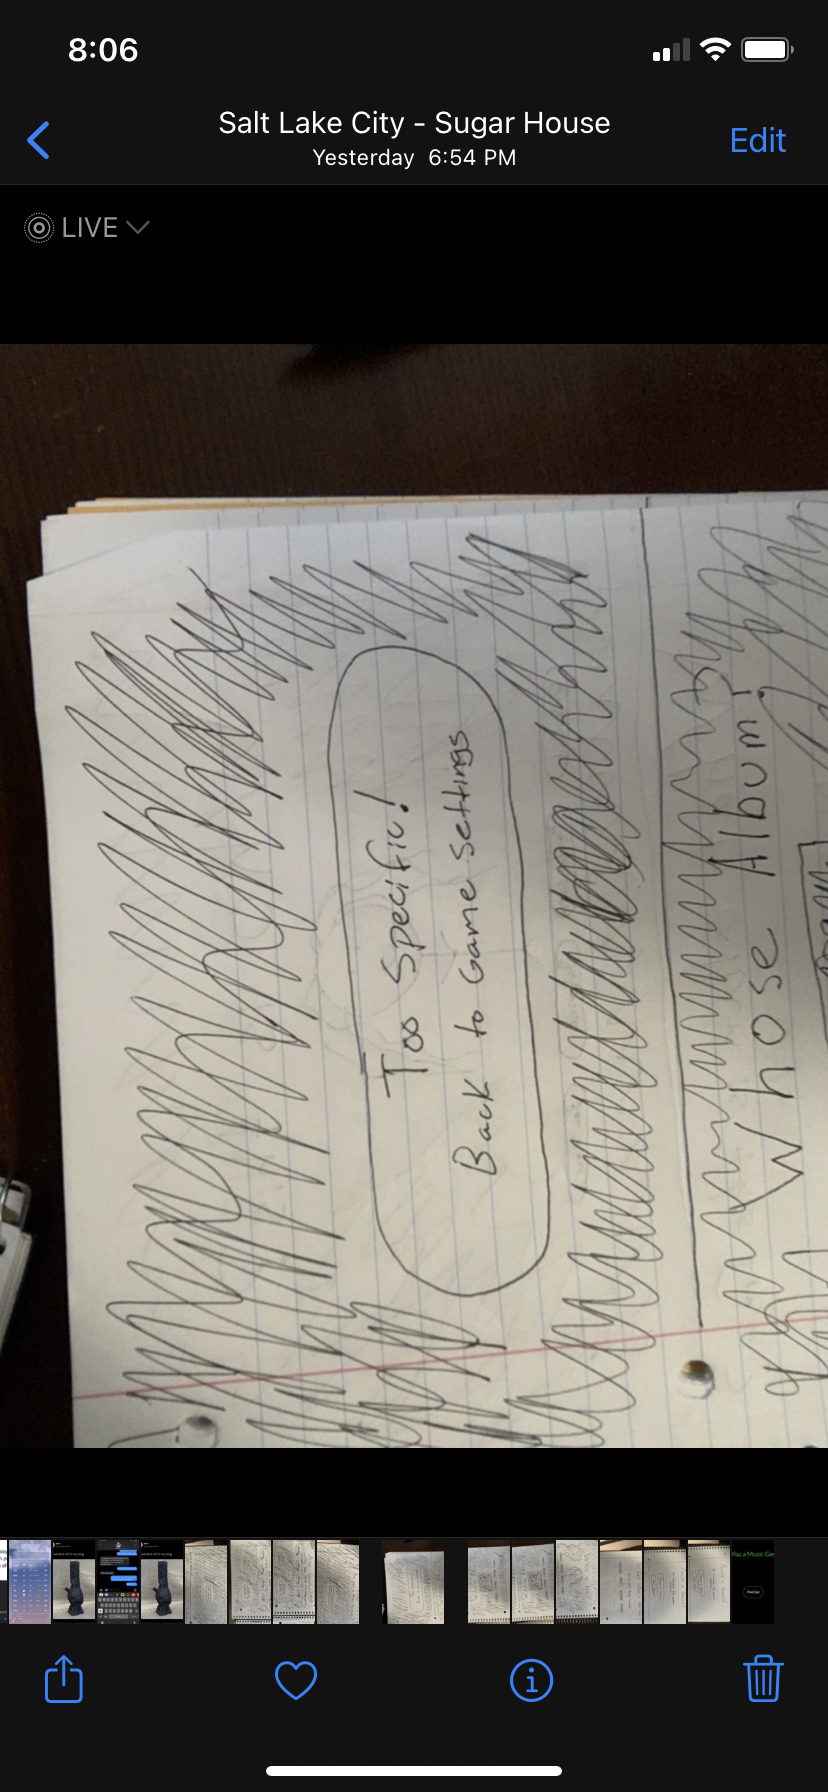 8:06
Salt Lake City - Sugar House
Yesterday 6:54 PM
Edit
LIVE
Too Specific!
Back to Game Settings
Whose Album!
You a Music Ge